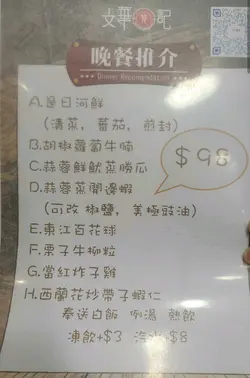 文華 記
晚餐推介
Dinner Recommendation
A.是日河鮮
(清蒸，蕃茄，煎封)
B.胡椒蘿蔔牛腩
C.蒜蓉鮮魷蒸勝瓜
D.蒜蓉蒸開邊蝦
(可改 椒鹽，美極豉油)
$98
E.東江百花球
F.栗子牛柳粒
G.當紅炸子雞
H.西蘭花炒帶子蝦仁
奉送白飯 例湯 熱飲
凍飲+$3 汽水+$8